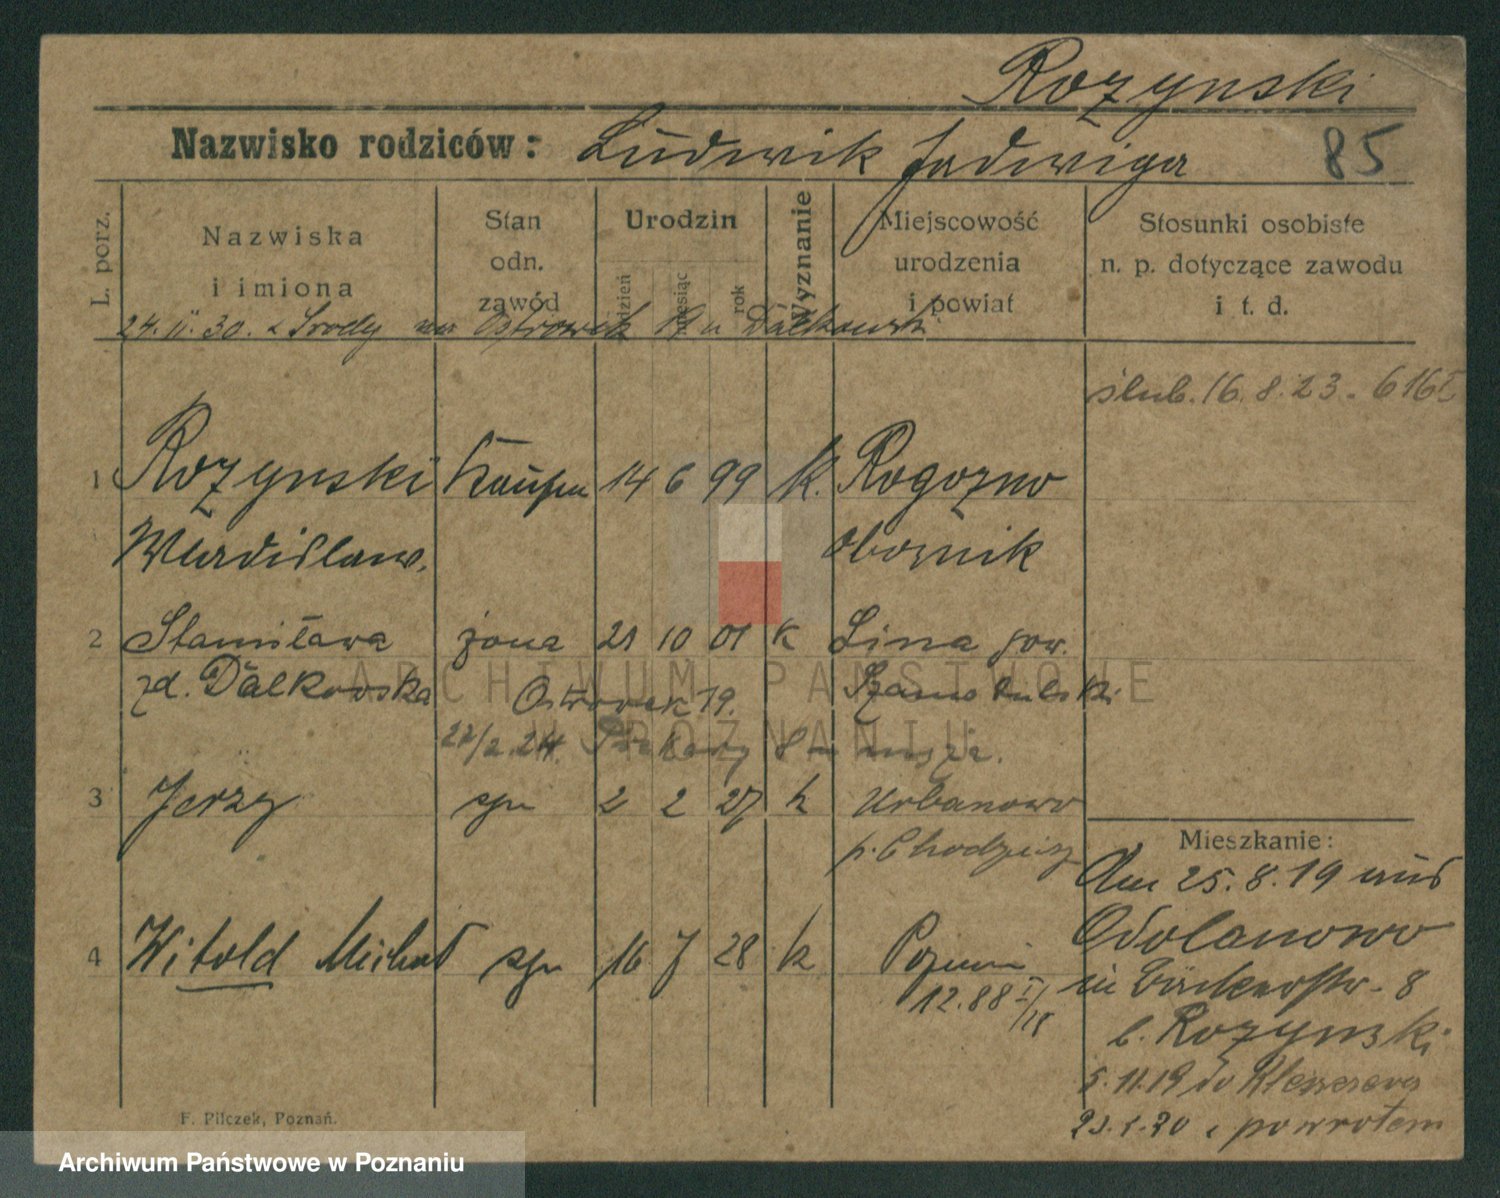 Rozynski
Nazwisko rodziców: Ludwik Jadwiga 85
L. porz.
Nazwiska
i imiona
Stan
odn.
zawód
Urodzin
dzień
miesiąc
rok
Wyznanie
Miejscowość
urodzenia
i powiat
Stosunki osobiste
n. p. dotyczące zawodu
i t. d.
24. II. 30. z Srody na Ostrowek 19 u Dalkowsk.
ślub. 16. 8. 23. 616
1 Rozynski Kaufm 14 6 99 K. Rogozno
Wladislaw. Obornik
2 Stanisława żona 21 10 01 k Lina pow.
zd. Dalkowska Ostrowek 19. Szamotulski
22/2. 24. Piekary
3 Jerzy syn 2 2 27 k Urbanowo
p. Chodzież
Mieszkanie:
Am 25. 8. 19 aus
Odolanowo
4 Witold Michał syn 16 7 28 k Poznań
12.88 I/28
in Bäckerstr. 8
b. Rozynski
5. 11. 19 do
23. 1. 20 z powrotem
F. Pilczek, Poznań.
ARCHIWUM PAŃSTWOWE
W POZNANIU
Archiwum Państwowe w Poznaniu